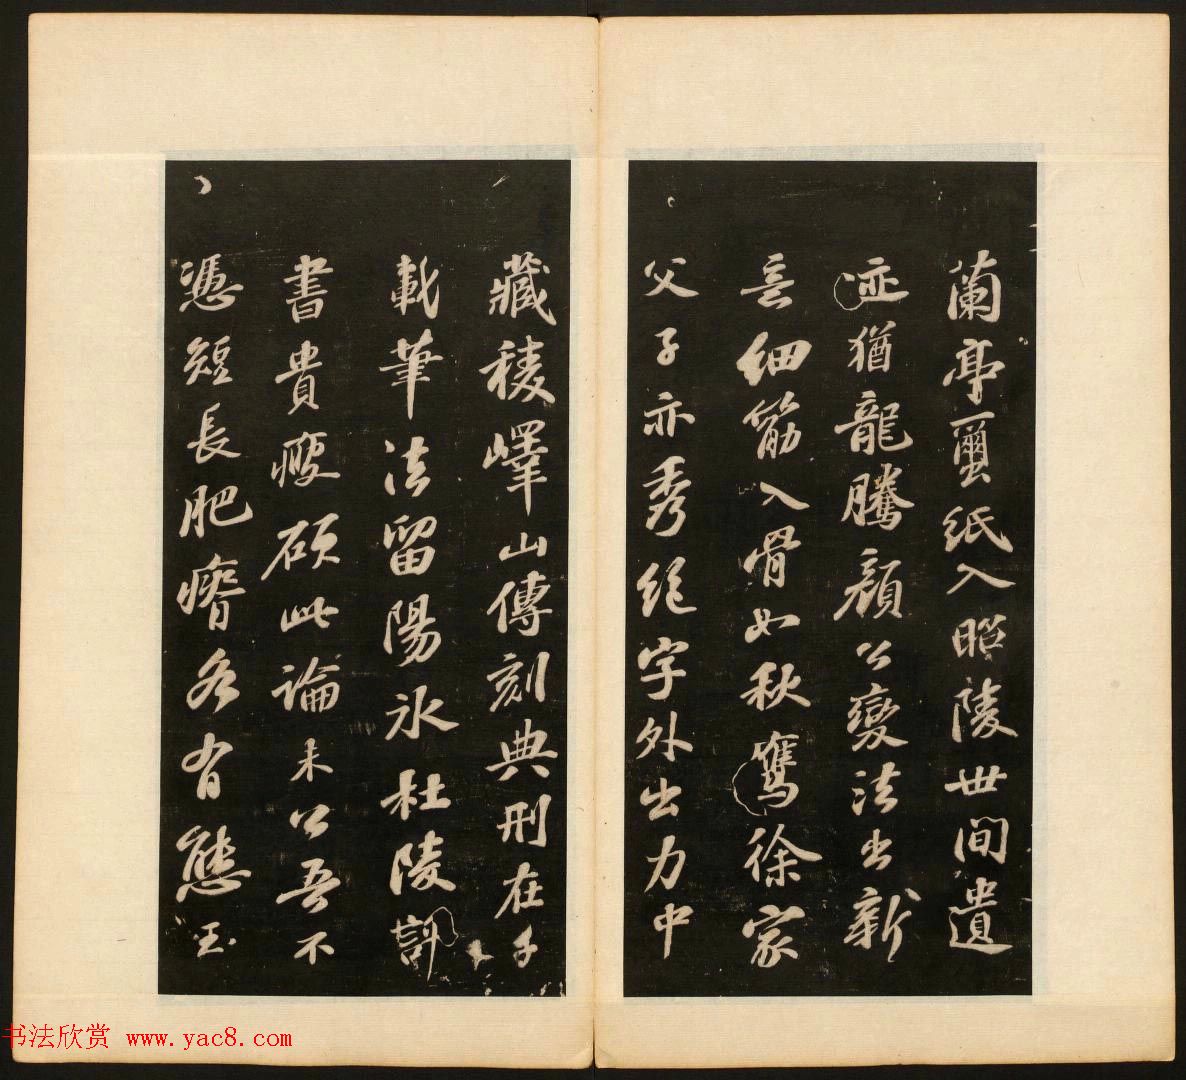 蘭亭璽紙入昭陵世間遺
迹猶龍騰顏公變法出新
意細筋入骨如秋鷹徐家
父子亦秀絕字外出力中
藏稜嶧山傳刻典刑在千
載筆法留陽冰杜陵評
書貴瘦硬此論未公吾不
憑短長肥瘠各有態玉
书法欣赏 www.yac8.com